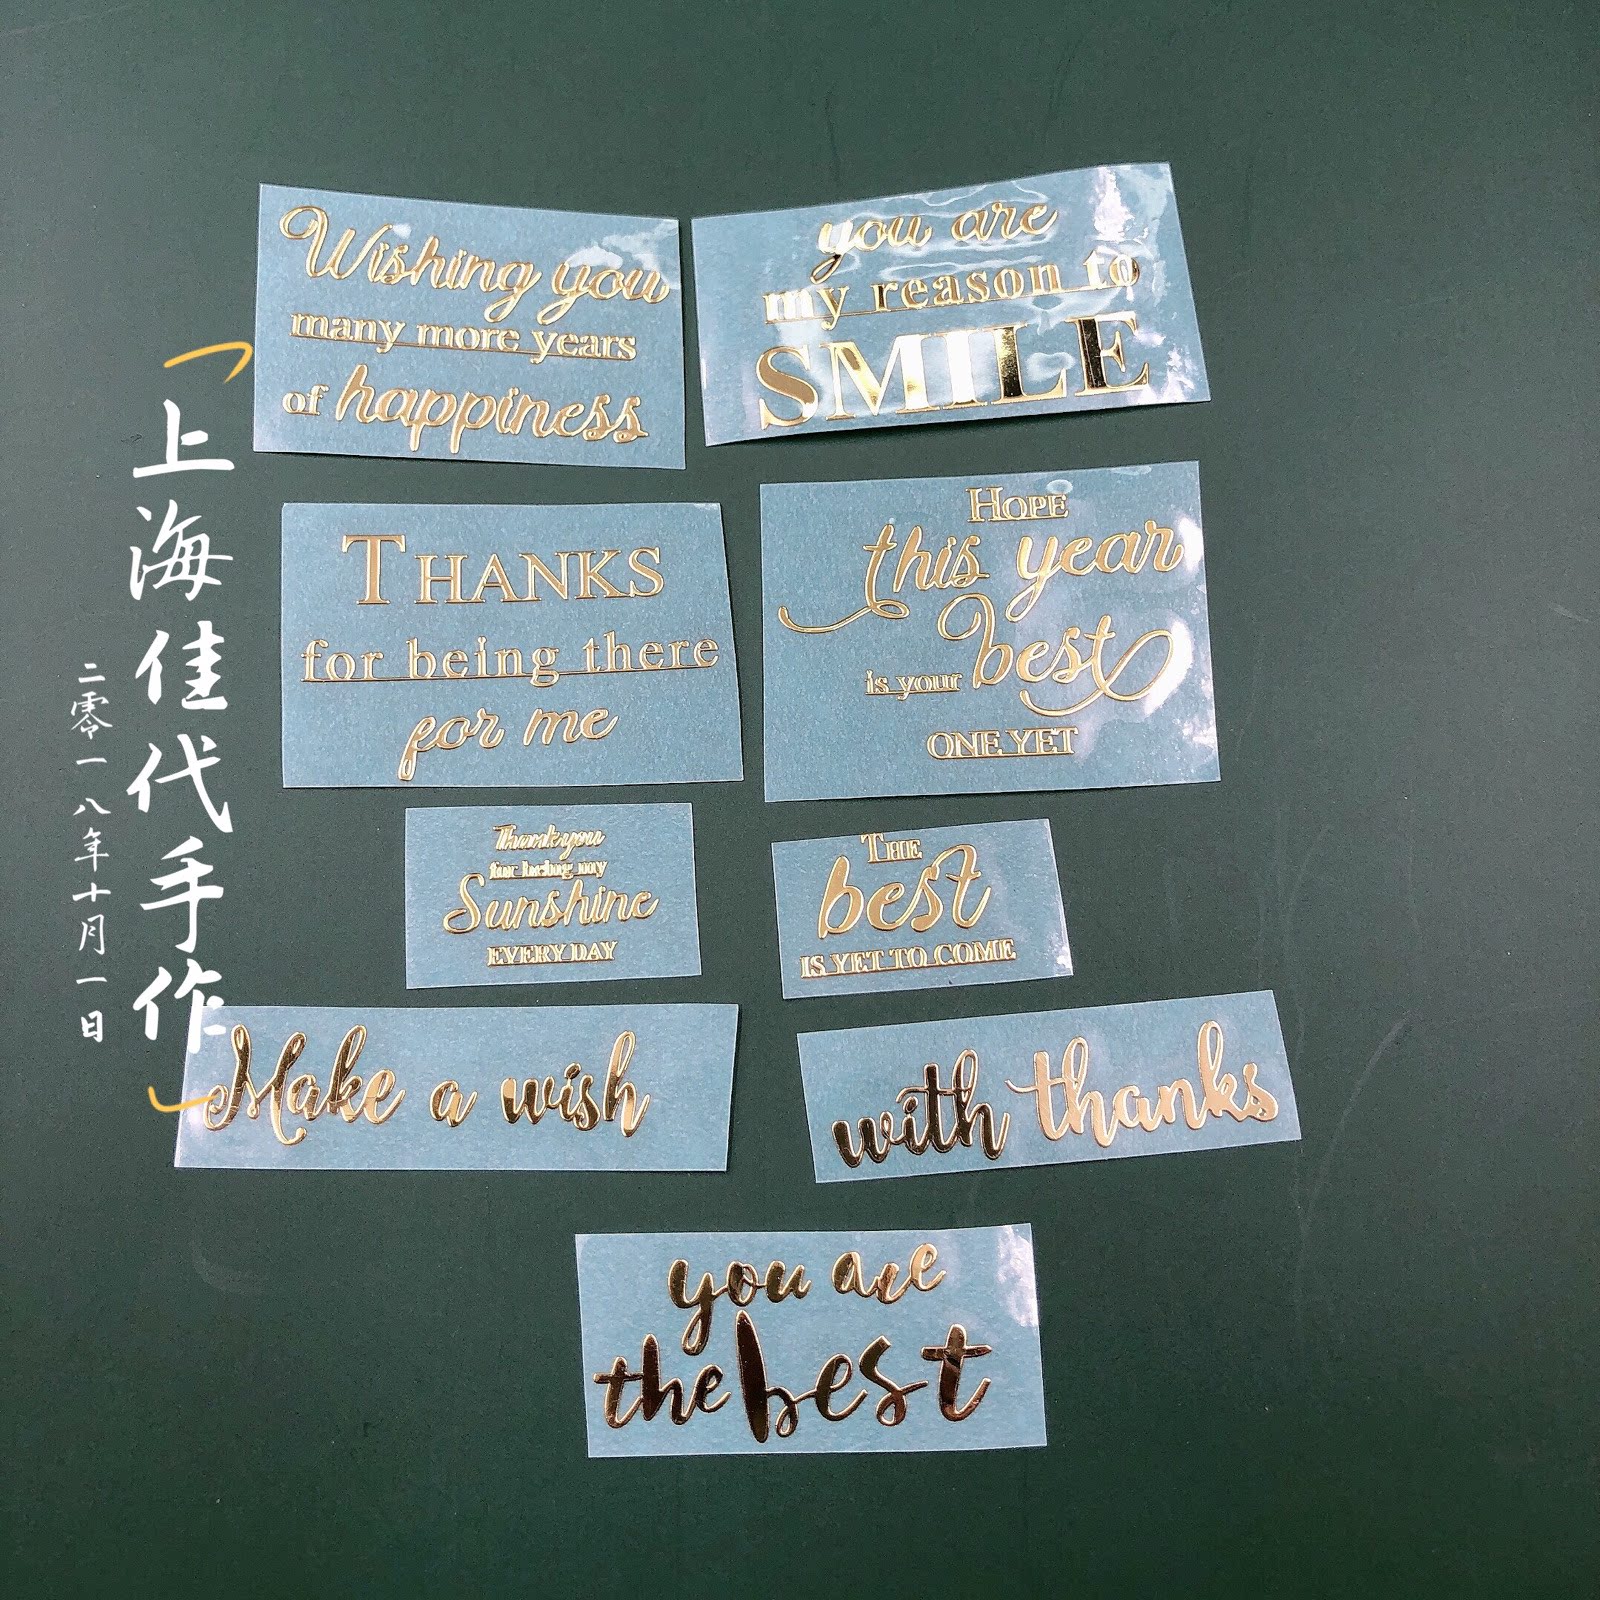 Wishing you
many more years
of happiness
you are
my reason to
SMILE
THANKS
for being there
for me
HOPE
this year
is your best
ONE YET
Thank you
for being my
Sunshine
EVERY DAY
THE
best
IS YET TO COME
Make a wish
with thanks
you are
the best
上海佳代手作
二零一八年十月一日